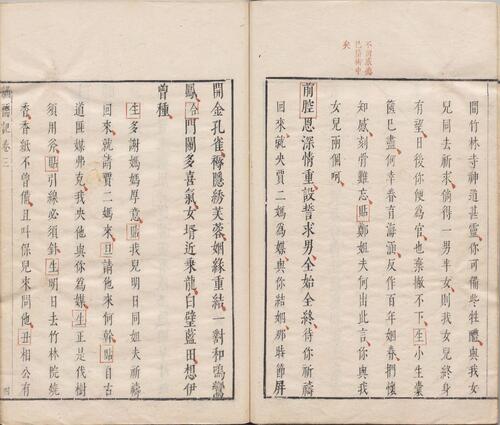 已墮術中
矣
間竹林寺神道甚靈你可備些牲醴與我女
兒同去祈求倘得一男半女則我女兒終身
有望日後你便為官也棄撇不下生小生囊
篋已盡何幸春育海涵反作百年姻眷捫懷
知感刻骨難忘貼鄭姐夫何出此言你與我
女兒兩個呵
前腔恩深情重設誓求男全始全終待你祈禱
回來就央賈二媽為媒與你結姻那時節屏
開金孔雀褥隱綉芙蓉姻緣重結一對和鳴鸞
鳳合門闌多喜氣女壻近乘龍白壁藍田想伊
曾種
生多謝媽媽厚意貼我兒明日同姐夫祈禱
回來就請賈二媽來旦請他來何幹貼自古
道匪媒弗克我央他與你為媒生正是伐樹
須用斧貼引線必須針生明日去竹林院燒
香香紙不曾備且叫保兒來問他丑相公有
繡襦記卷三
四